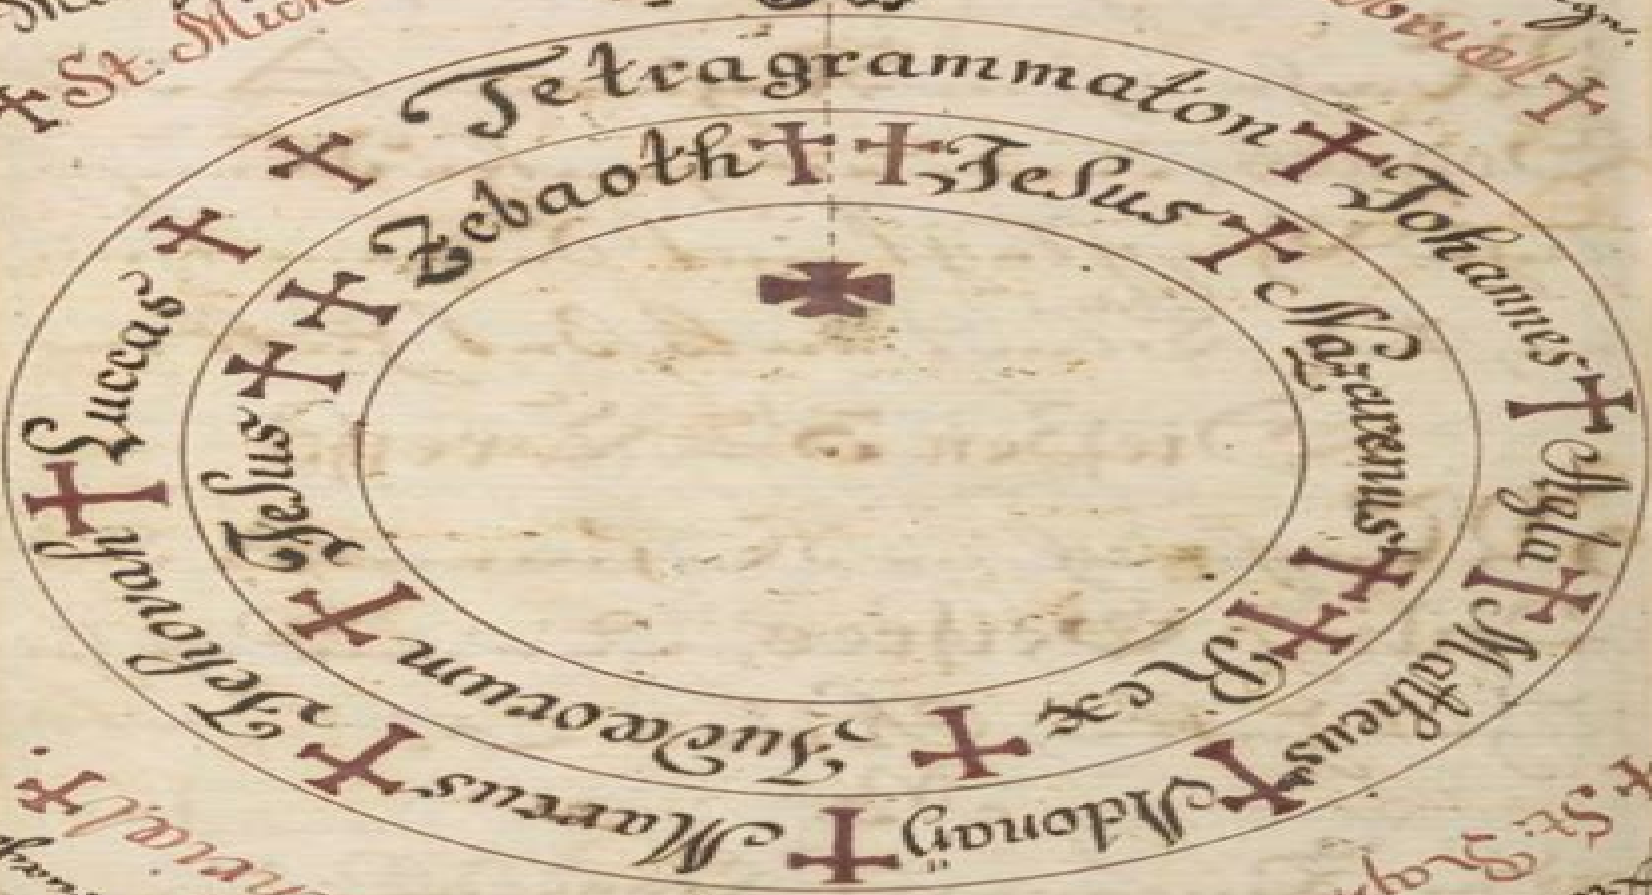 St. Mich
briæl
Tetragrammaton Johannes Agla Matheus Adonaÿ Marcus Jehovah Luccas
Jesus Nazarenus Rex Judæorum Jesus Zebaoth
St. Rap